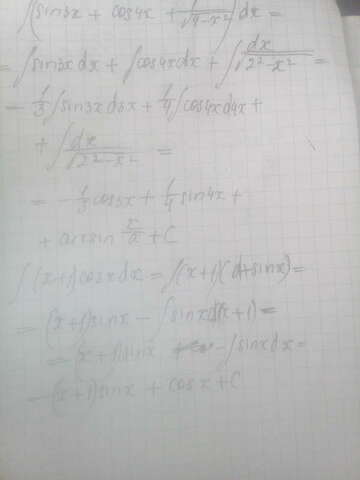 ∫(sin3x + cos4x + 1/√(4-x²))dx =
= ∫sin3xdx + ∫cos4xdx + ∫dx/√(2²-x²) =
= 1/3∫sin3xd3x + 1/4∫cos4xd4x +
+ ∫dx/√(2²-x²) =
= -1/3cos3x + 1/4sin4x +
+ arcsin x/2 + C
∫(x+1)cosxdx = ∫(x+1)(d+sinx) =
= (x+1)sinx - ∫sinxd(x+1) =
= (x+1)sinx - ∫sinxdx =
= (x+1)sinx + cosx + C